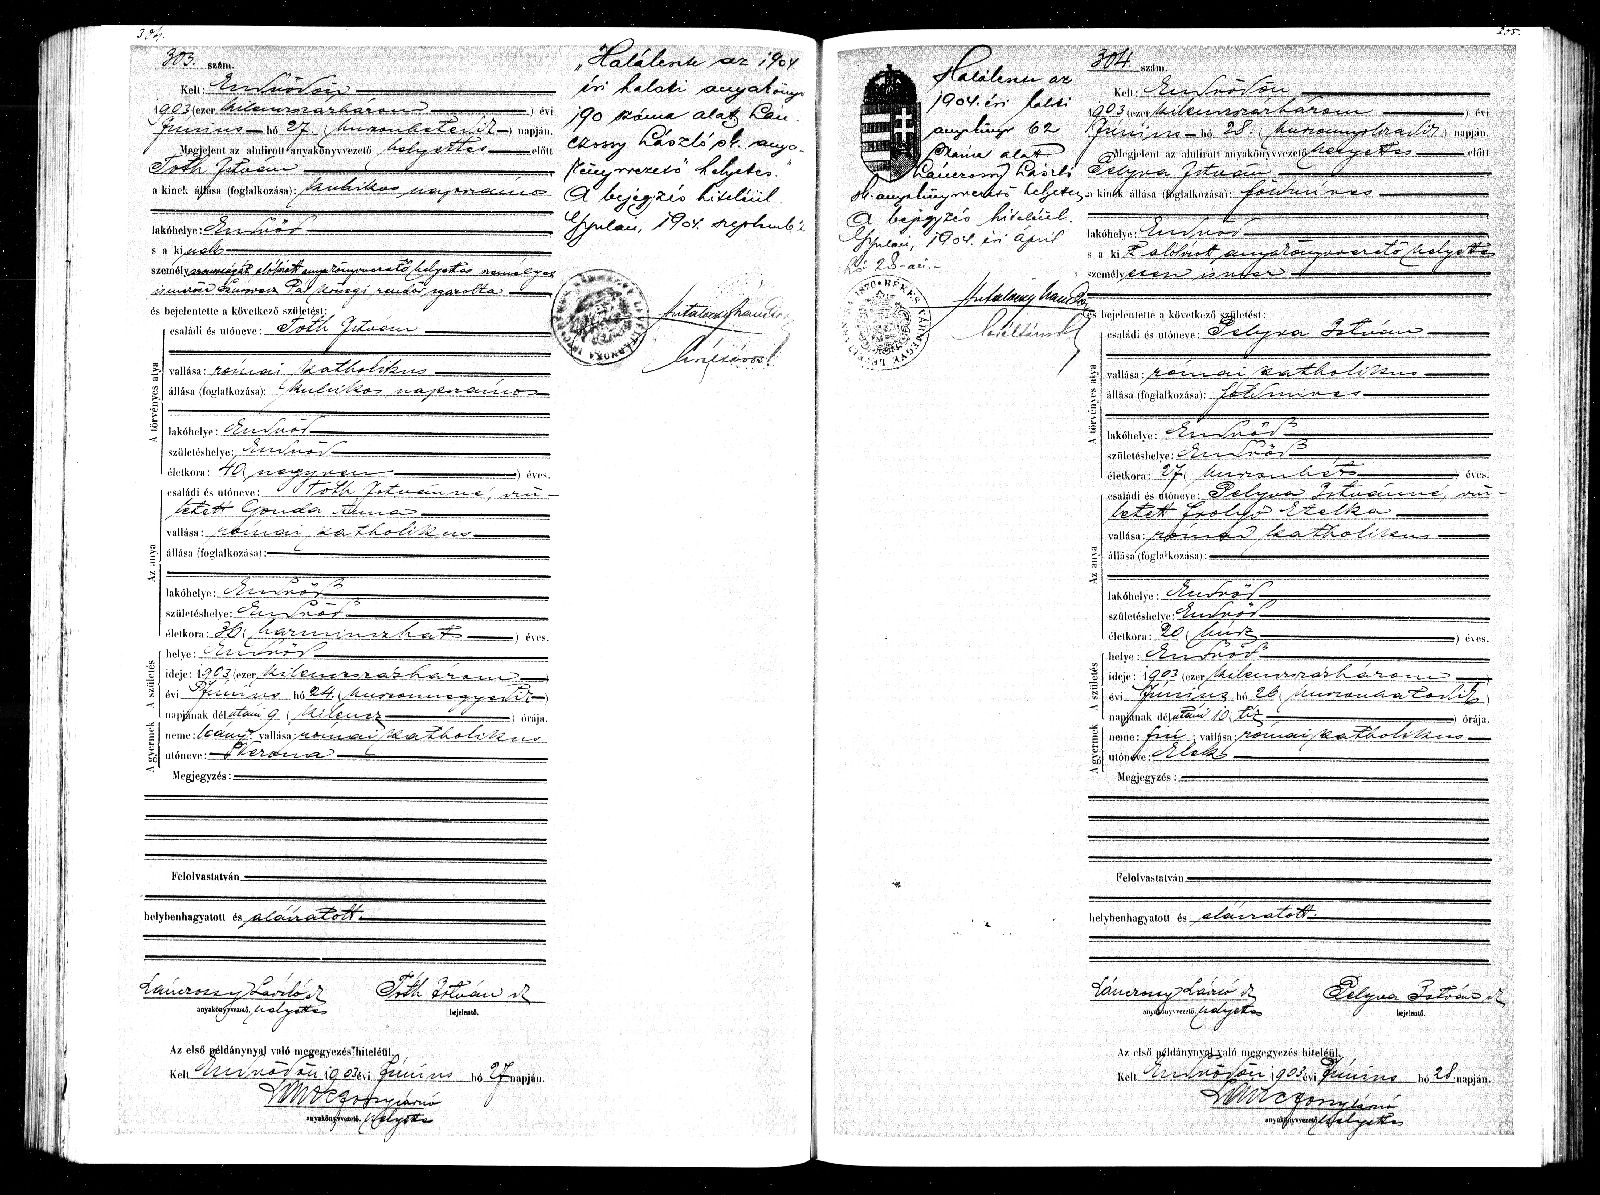 304.
303. szám.
Kelt: Endrődön
1903 (ezer kilenczszázhárom) évi
Június hó 27. (huszonhetedik) napján.
Megjelent az alulirott anyakönyvvezető helyettes előtt
Tóth István
a kinek állása (foglalkozása): kubikos napszámos
lakóhelye: Endrőd
s a kinek
személyazonosságát alólírott anyakönyvvezető helyettes személyes
Pál községi rendőr igazolta
és bejelentette a következő születést:
A törvényes atya
családi és utóneve: Tóth István
vallása: római katholikus
állása (foglalkozása): kubikos napszámos
lakóhelye: Endrőd
születéshelye: Endrőd
életkora: 40 (negyven) éves.
Az anya
családi és utóneve: Tóth Istvánné, szü-
letett Gonda Anna
vallása: római katholikus
állása (foglalkozása):
lakóhelye: Endrőd
születéshelye: Endrőd
életkora: 36 (harminczhat) éves.
A születés
helye: Endrőd
ideje: 1903 (ezer kilenczszázhárom)
évi Június hó 24. (huszonnegyedik)
napjának délutáni 9 (kilencz) órája.
A gyermek
neme: leány vallása: római katholikus
utóneve: Verona
Megjegyzés:
Felolvastatván
helybenhagyatott és aláíratott
Lánczossy László sk Tóth István sk
anyakönyvvezető, helyettes bejelentő.
Az első példánynyal való megegyezés hiteléül.
Kelt Endrődön 1903 évi Június hó 27 napján.
Lánczossy László
anyakönyvvezető, helyettes
"Halálesete az 1904
évi halotti anyakönyv
190 száma alatt Lán-
czossy László sk. anya-
könyvvezető helyettes."
A bejegyzés hiteléül.
Gyulán, 1904. szeptemb. 2
Halálesete az
1904. évi halotti
anyakönyv 62
száma alatt
Lánczossy László
sk. anyakönyvvezető helyettes
A bejegyzés hiteléül.
Gyulán, 1904. évi április
hó 28-án.
BÉKÉS VÁRMEGYE LEVÉLTÁRNOKA 1876
205.
304. szám.
Kelt: Endrődön
1903 (ezer kilenczszázhárom) évi
Június hó 28. (huszonnyolczadik) napján.
Megjelent az alulirott anyakönyvvezető helyettes előtt
Pelyva István
a kinek állása (foglalkozása): földmíves
lakóhelye: Endrőd
s a kit alólírott anyakönyvvezető helyettes
személyesen ismer
és bejelentette a következő születést:
A törvényes atya
családi és utóneve: Pelyva István
vallása: római katholikus
állása (foglalkozása): földmíves
lakóhelye: Endrőd
születéshelye: Endrőd
életkora: 27 (huszonhét) éves.
Az anya
családi és utóneve: Pelyva Istvánné, szü-
letett Etelka
vallása: római katholikus
állása (foglalkozása):
lakóhelye: Endrőd
születéshelye: Endrőd
életkora: 20 (húsz) éves.
A születés
helye: Endrőd
ideje: 1903 (ezer kilenczszázhárom)
évi Június hó 26 (huszonhatodik)
napjának délutáni 10 (tíz) órája.
A gyermek
neme: fiú vallása: római katholikus
utóneve: Elek
Megjegyzés:
Felolvastatván
helybenhagyatott és aláíratott
Lánczossy László sk Pelyva István sk
anyakönyvvezető, helyettes bejelentő.
Az első példánynyal való megegyezés hiteléül.
Kelt Endrődön 1903. évi Június hó 28. napján.
Lánczossy László
anyakönyvvezető, helyettes